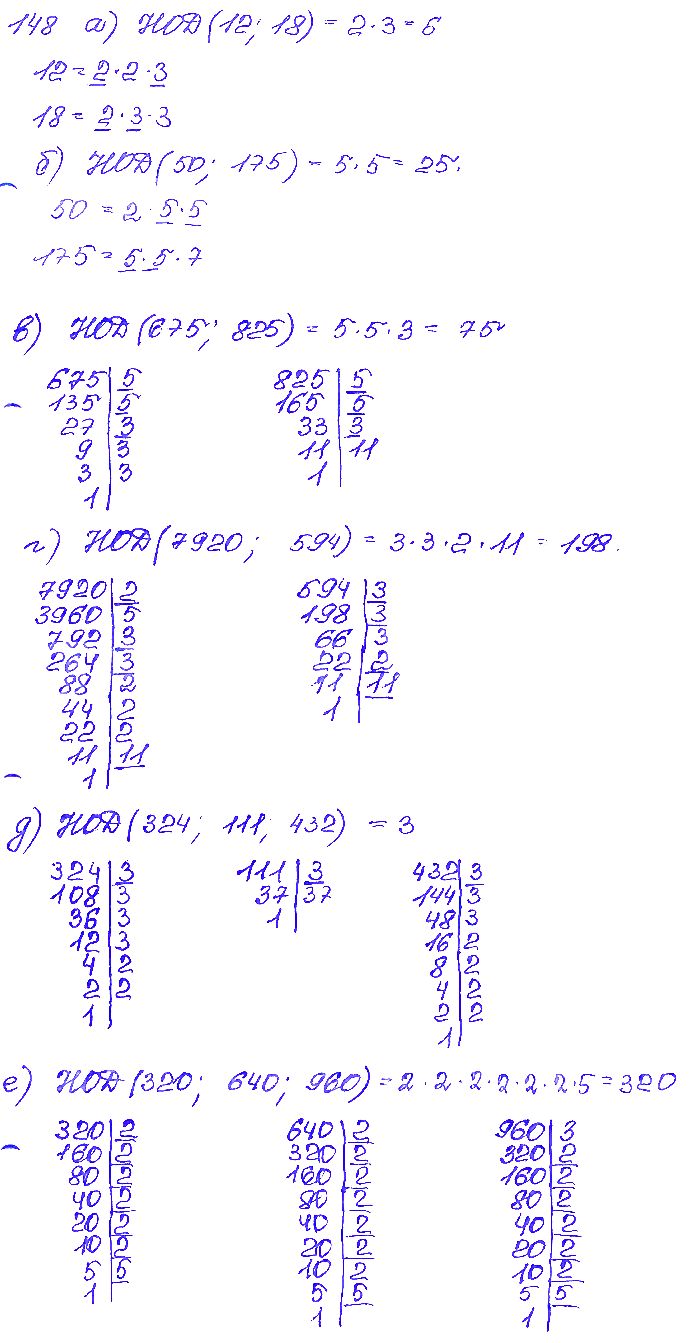 148 а) НОД(12; 18) = 2·3 = 6
12 = 2·2·3
18 = 2·3·3
б) НОД(50; 175) = 5·5 = 25.
50 = 2·5·5
175 = 5·5·7
в) НОД(675; 825) = 5·5·3 = 75
675|5 825|5
135|5 165|5
27|3 33|3
9|3 11|11
3|3 1|
1|
г) НОД(7920; 594) = 3·3·2·11 = 198.
7920|2 594|3
3960|5 198|3
792|3 66|3
264|3 22|2
88|2 11|11
44|2 1|
22|2
11|11
1|
д) НОД(324; 111; 432) = 3
324|3 111|3 432|3
108|3 37|37 144|3
36|3 1| 48|3
12|3 16|2
4|2 8|2
2|2 4|2
1| 2|2
1|
е) НОД(320; 640; 960) = 2·2·2·2·2·2·5 = 320
320|2 640|2 960|3
160|2 320|2 320|2
80|2 160|2 160|2
40|2 80|2 80|2
20|2 40|2 40|2
10|2 20|2 20|2
5|5 10|2 10|2
1| 5|5 5|5
1| 1|